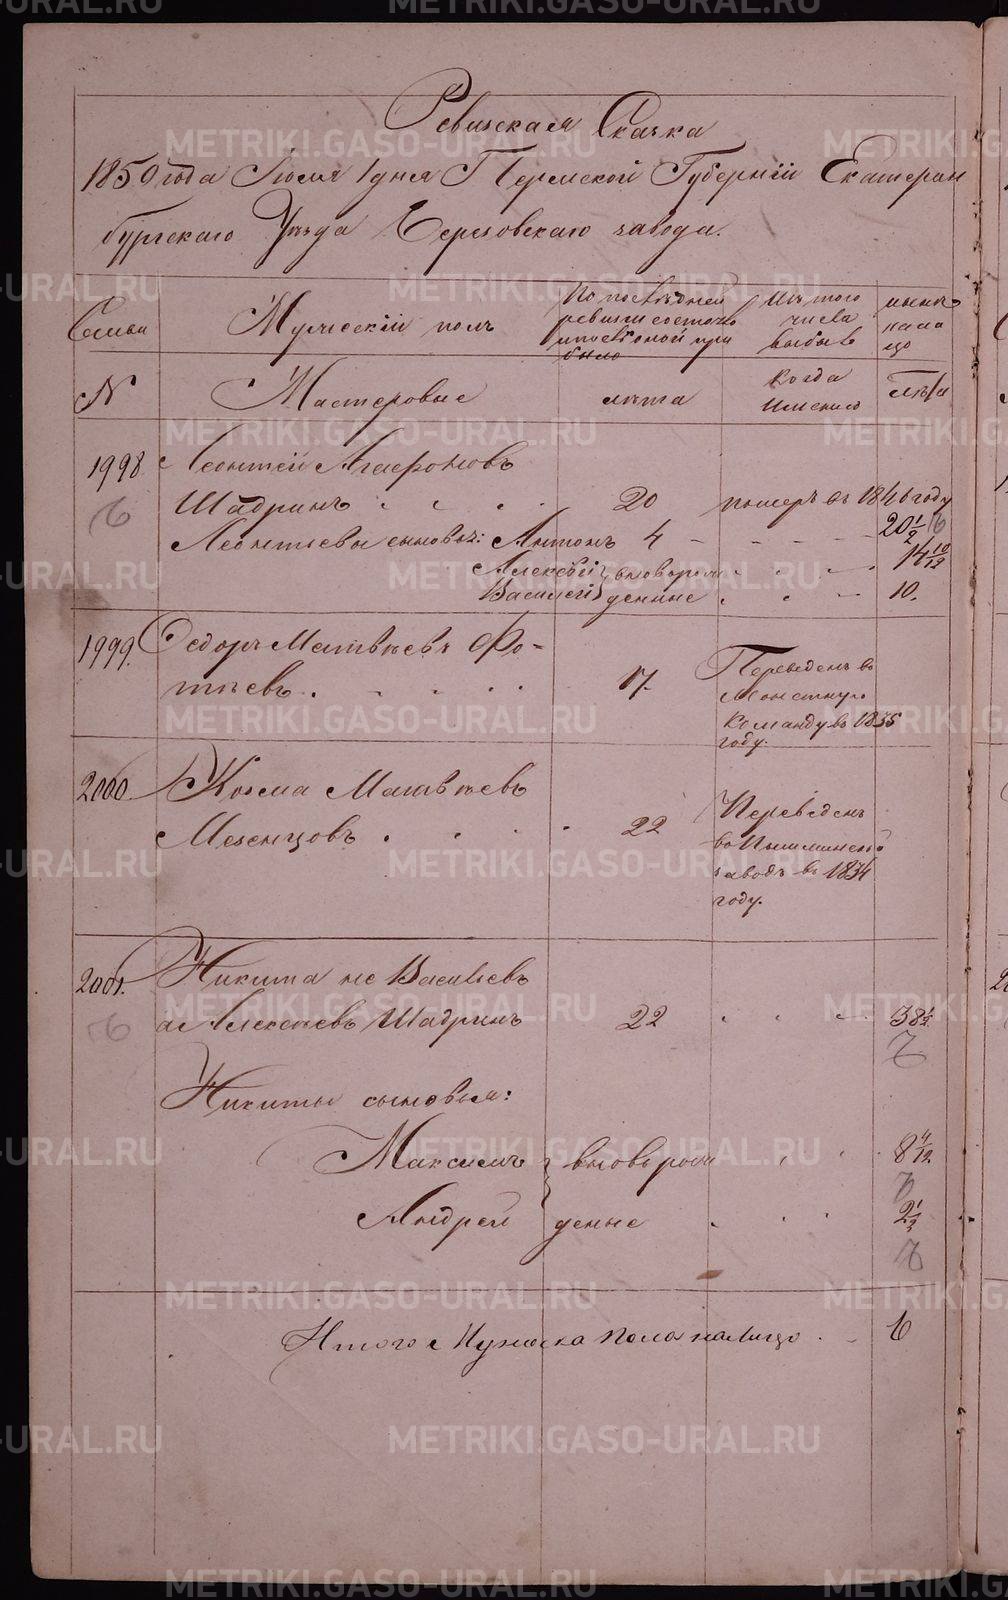 Ревизская Сказка
1850 года Июля 1 дня Пермской Губернiи Екатерин
бургскаго Уѣзда Березовскаго завода.
Семьи
Мужескiй полъ
По послѣдней
ревизiи состояло
и послѣ оной при
было
Изъ того
числа
выбыло
нынѣ
на ли
цо
№
Мастеровые
лѣта
Когда
именно
лѣта
1998 Леонтей Агафоновъ
Шадринъ 20 померъ въ 1846 году
Леонтьевы сыновья: Антонъ 4 20 1/2
Алексѣй вновьрож 14 10/12
Василiй денные 10.
1999. Федоръ Матвѣевъ Фо-
тѣевъ 17. Переведенъ въ
Монетную
Команду въ 1835
году.
2000. Козма Матвѣевъ
Мезенцовъ 22 Переведенъ
во Пышминскiй
заводъ въ 1834
году.
2001. Никита не Васильевъ
а Алексѣевъ Шадринъ 22 38 1/2
Никиты сыновья:
Максимъ вновьрож 8 4/12
Андрей денные 2 1/2
Итого Мужеска пола налицо 6
METRIKI.GASO-URAL.RU